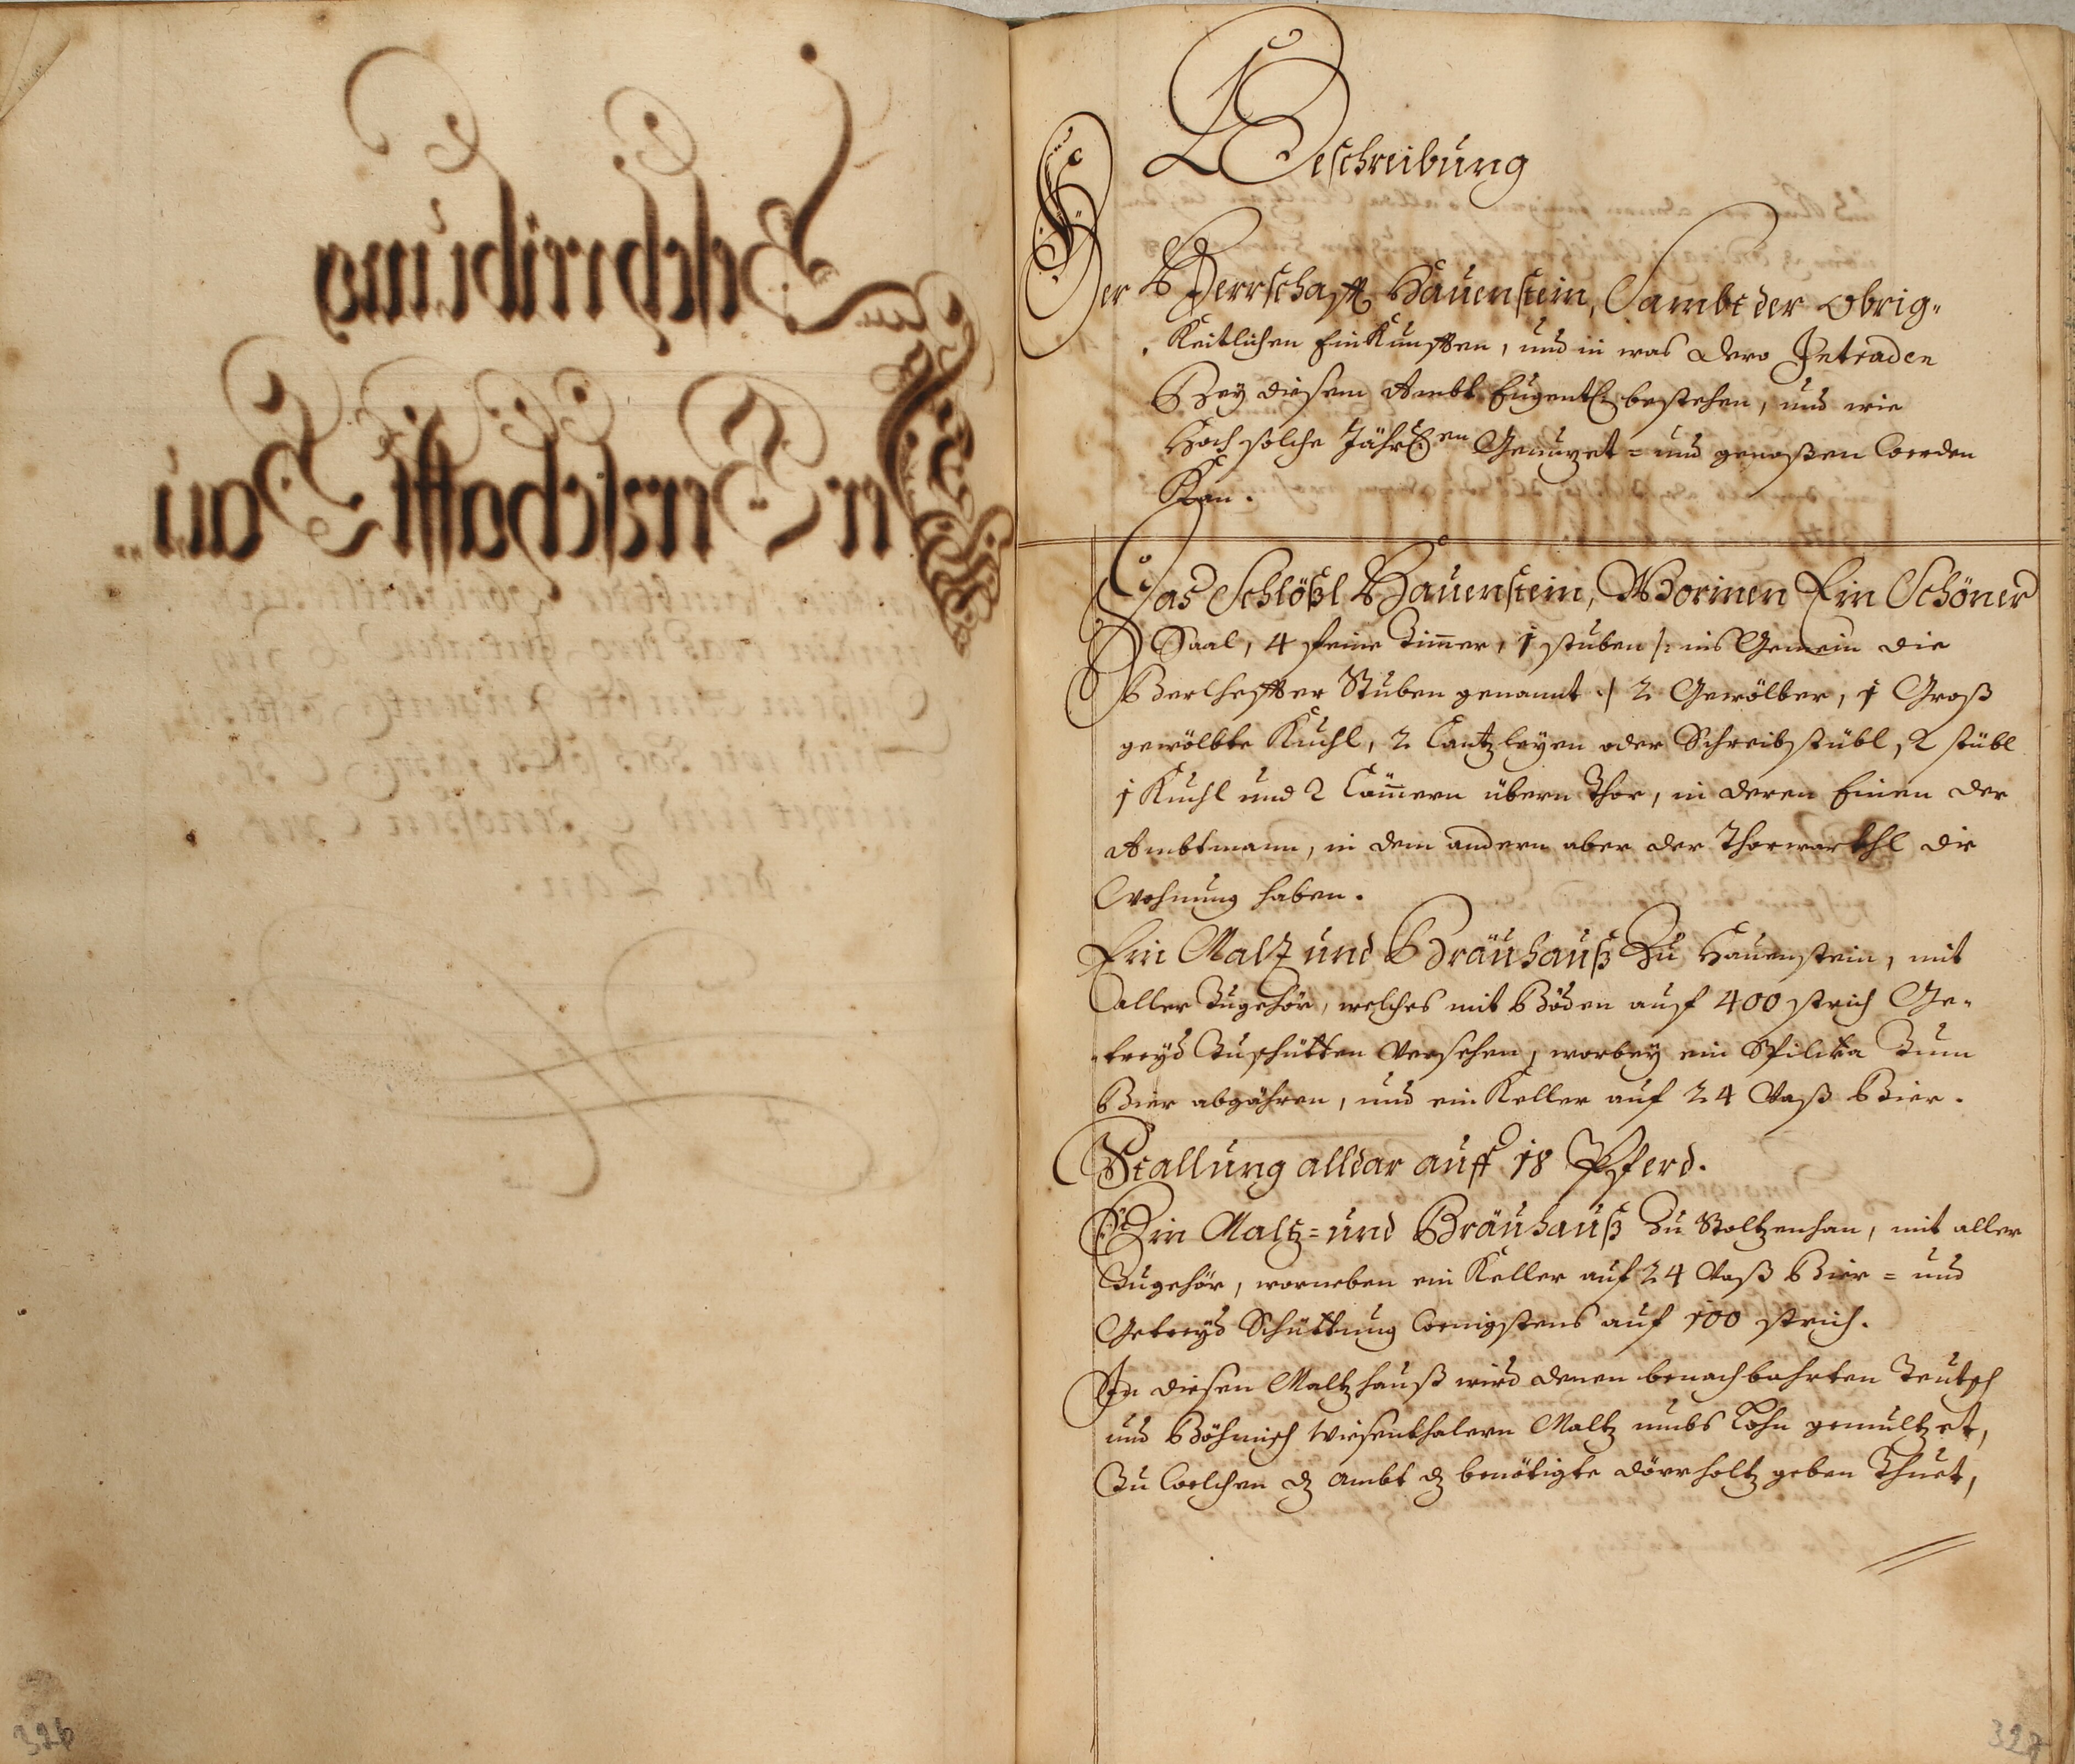 Beschreibung
Der Herrschafft Hauenstein, Sambt der Obrig-
Keitlichen EinKunfften, und in was dero Intraden
Bey diesem Ambt Eugentl. bestehen, und wie
Hoch solche Jährl:en Genutzet = und genoßen werden
Kan.
Das Schlößl Hauenstein, Worinen Ein Schöner
Saal, 4 feine Zimer, 1 stuben /: ins Gemein die
Stuben genannt :/ 2 Gewölber, 1 Groß
gewölbte Kuchl, 2 Cantzleyen oder Schreibstübl, 2 stübl
1 Kuchl und 2 Camern übern Thor, in deren Einen der
Ambtmann, in dem andern aber der Thorwarthl die
Wohnung haben.
Ein Maltz und Bräuhauß Zu Hauenstein, mit
aller Zugehör, welches mit Böden auf 400 strich Ge-
treyd Zuschütten Versehen, worbey ein Spilka Zum
Bier abgähren, und ein Keller auf 24 Vaß Bier.
Stallung alldar auff 18 Pferd.
Ein Maltz = und Bräuhauß Zu Stoltzenhan, mit aller
Zugehör, worneben ein Keller auf 24 Vaß Bier = und
Getreyd Schüttung wenigstens auf 100 strich.
In diesen Maltzhauß wird denen benachbahrten Teutsch
und Böhmisch Wiesenthalern Maltz umbs Lohn gemultzet,
Zu welchen dz Ambt dz benötigte dörrholtz geben Thuet,
326
327